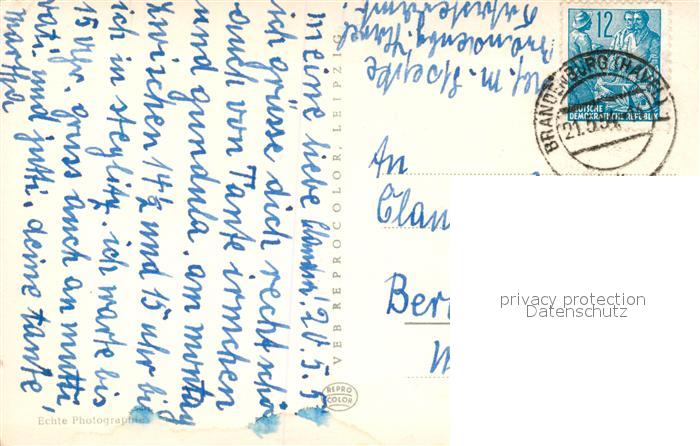 meine liebe Claudia! 20.5.5
ich grüsse dich recht schö
auch von Tante irmchen
und gundula. am montag
zwischen 14½ und 15 uhr bin
ich in steglitz. ich warte bis
15 uhr. gruss auch an mutti,
vati. und jutti, deine tante,
martha
Abs. M.
Brandenbg. Havel
12
DEUTSCHE
DEMOKRATISCHE REPUBLIK
BRANDENBURG (HAVEL)
21.5.5
An
Clau
Ber
W
privacy protection
Datenschutz
VEB REPROCOLOR, LEIPZIG
REPRO
COLOR
Echte Photographie